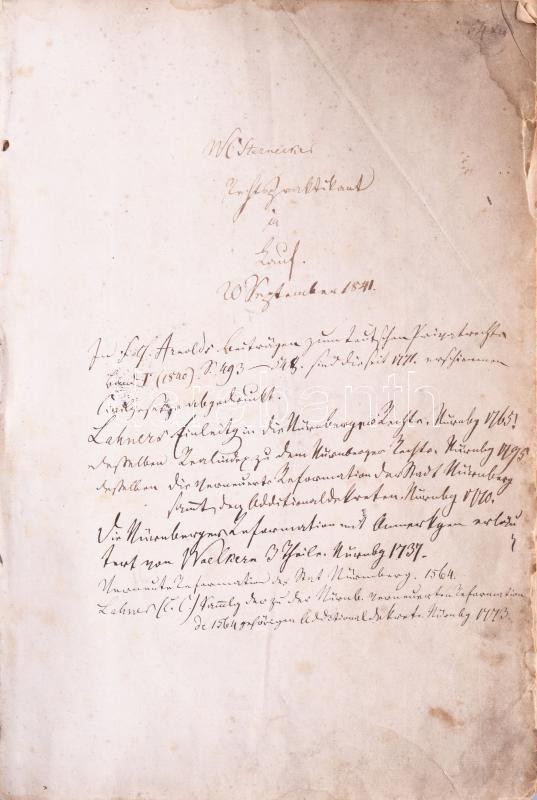 Rechtspraktikant
in
Lauf.
20 September 1841.
In Arnolds Beiträgen zum teutschen Privatrechte
Band I (1840) S. 493 – sind die seit 1770. erschienenen
abgedruckt.
Lahners Einleitg in die Nürnberger Rechte. Nürnbg 1765!
desselben Realindex zu dem Nürnberger Rechte. Nürnbg 1795
desselben die verneuerte Reformation der Stadt Nürnberg
sammt den Additionaldekreten. Nürnbg 1770.
Die Nürnberger Reformation mit Anmerkgen erläu
tert von Woelkern 3 Theile. Nürnbg 1737.
Verneute Reformation der Stat Nürmberg. 1564.
Lahner Sammlg der zu der Nürnb. verneuerten Reformation
de 1564 gehörigen Additionaldekrete. Nürnbg 1773.